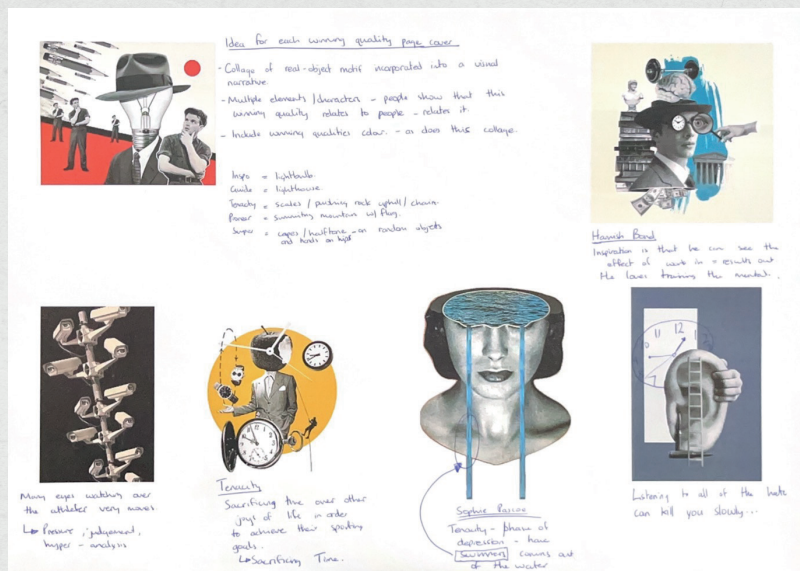 Idea for each winning quality page cover
- Collage of real-object motif incorporated into a visual
narrative.
- Multiple elements/characters - people show that this
winning quality relates to people - relates it.
- Include winning qualities colour - as does this collage.
Inspo = lightbulb.
Guide = lighthouse.
Tenacity = scales / pushing rock uphill / chain.
Pioneer = summiting mountain w/ flag.
= capes / halftone - on random objects
and hands on hips
Hamish Bond
Inspiration is that he can see the
effect of work in = results out
He loves training the mental.
12
11
Many eyes watching over
the athletes very moves
↳ Pressure, judgement,
hyper-analysis
Tenacity
Sacrificing time over other
joys of life in order
to achieve their sporting
goals.
↳ Sacrificing Time.
Sophie Pascoe
Tenacity - phase of
depression - have
swimmers comes out
of the water
Listening to all of the hate
can kill you slowly...